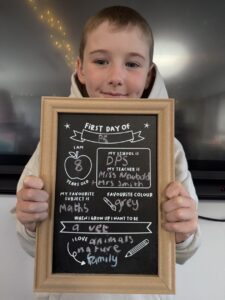 FIRST DAY OF
I AM
8
YEARS OLD
MY SCHOOL IS
DPS
MY TEACHER IS
Miss Newbold
+ Mrs Smith
MY FAVOURITE
SUBJECT IS
Maths
FAVOURITE COLOUR
grey
WHEN I GROW UP I WANT TO BE
a vet
I LOVE
animals
nature
family